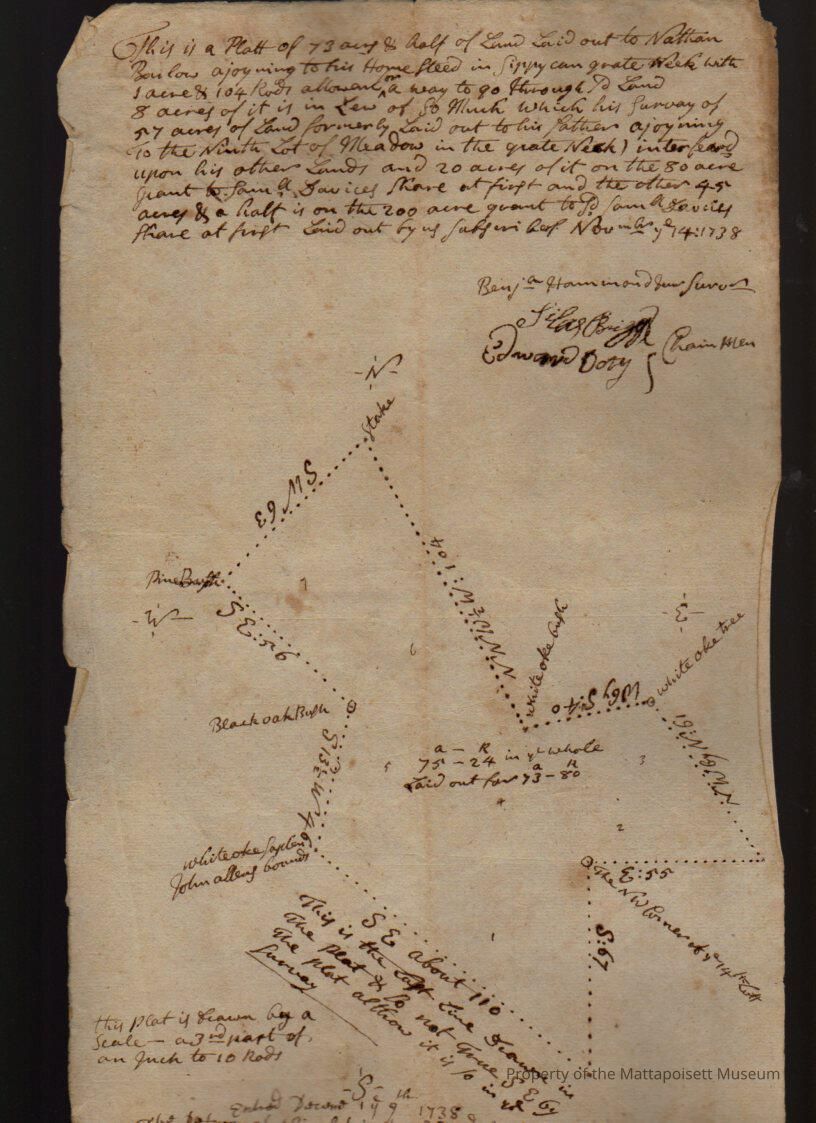 This is a Platt of 73 acrs & half of Land Laid out to Nathan
Barlow ajoyning to his Home Steed in Sippycan grate Neck with
1 acre & 104 Rods allowanc on a way to go through sd Land
8 acres of it is in Lew of So Much which his Survay of
57 acres of Land formerly Laid out to his father ajoyning
To the Ninth Lot of Meadow in the grate Neck) interfeard
upon his other Lands and 20 acres of it on the 80 acre
grant to Samll Davices Share at first and the other 45
acres & a half is on the 200 acre grant to sd Samll Davices
Share at first Laid out by us Subscribed Novmbr ye 14:1738
Benja Hammond Jun Survor
Silas Briggs
Edward Doty
Chain Men
N
Stake
S W 63
Pine Bush
W
S E:56
N N W ½ W: 104
white oke bush
E
white oke tree
W 69 S:40
Black oak Bush
a - R
75 - 24 in ye whole
Laid out for 73 - 80
a R
7
6
5
4
3
2
1
S 13 ½ W 46
N W 69 N:61
white oke Saplen
John allens bounds
E:55
The NW Corner of ye 14th Lott
S:67
S E about 110
This is the Last Line Drawn in
The plat & Do not Come S E by
The plat althow it is so in ye
Survay
this plat is Drawn by a
Scale - a 3rd part of
an Inch to 10 Rods
S
Entred Decem 19th 1738
Property of the Mattapoisett Museum